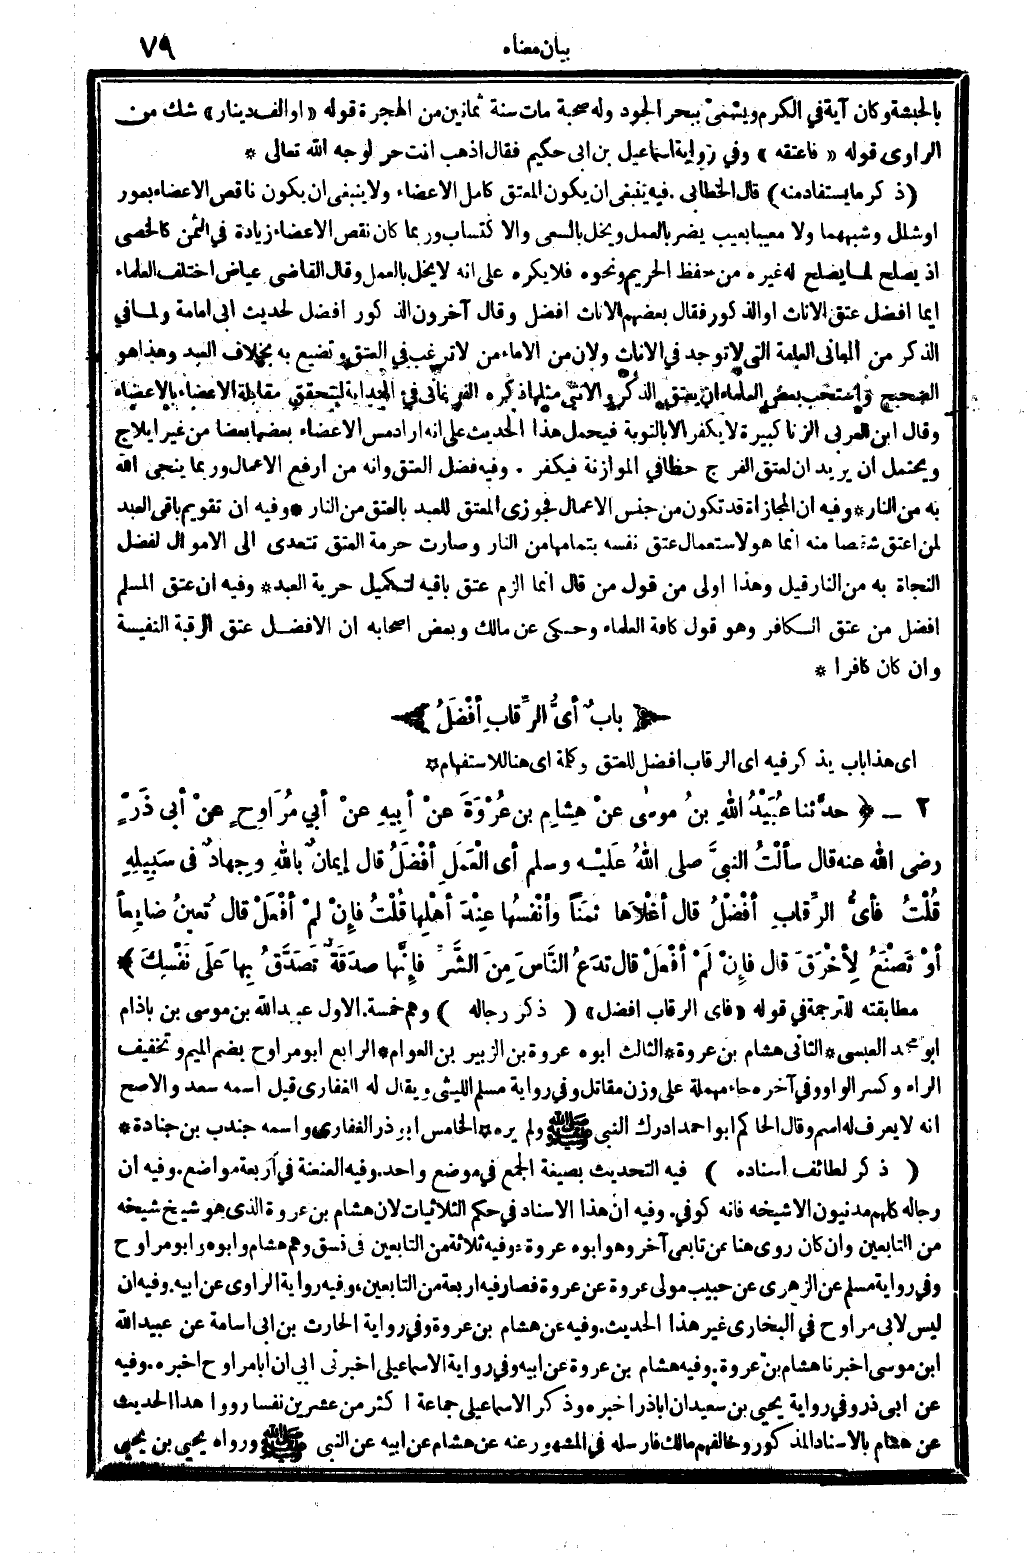 بيان معناه
٧٩
بالحبشة وكان آية في الكرم ويسمى ببحر الجود وله صحبة مات سنة ثمانين من الهجرة قوله «او الف دينار» شك من
الراوى قوله «فاعتقه» وفي رواية اسماعيل بن ابى حكيم فقال اذهب انت حر لوجه الله تعالى *
(ذكر ما يستفاد منه) قال الخطابى . فيه ينبغى ان يكون المعتق كامل الاعضاء ولا ينبغى ان يكون ناقص الاعضاء بعور
او شلل وشبههما ولا معيبا بعيب يضر بالعمل ويخل بالسعى والاكتساب وربما كان نقص الاعضاء زيادة في الثمن كالخصى
اذ يصلح لما يصلح له غيره من حفظ الحريم ونحوه فلا يكره على انه لا يخل بالعمل وقال القاضى عياض اختلف العلماء
ايما افضل عتق الاناث او الذكور فقال بعضهم الاناث افضل وقال آخرون الذكور افضل لحديث ابى امامة ولما في
الذكر من المعانى العامة التى لا توجد في الاناث ولان من الاماء من لا ترغب في العتق وتضيع به بخلاف العبد وهذا هو
الصحيح واستحب بعض العلماء ان يعتق الذكر والانثى مثلها ذكره الفرغانى في الهداية ليتحقق مقابلة الاعضاء بالاعضاء
وقال ابن العربى الزنا كبيرة لا يكفر الا بالتوبة فيحمل هذا الحديث على انه اراد مس الاعضاء بعضها بعضا من غير ايلاج
ويحتمل ان يريد ان لعتق الفرج حظا في الموازنة فيكفر . وفيه فضل العتق وانه من ارفع الاعمال وربما ينجى الله
به من النار * وفيه ان المجازاة قد تكون من جنس الاعمال فجوزى المعتق للعبد بالعتق من النار * وفيه ان تقويم باقى العبد
لمن اعتق شقصا منه انما هو لاستعمال عتق نفسه بتمامها من النار وصارت حرمة العتق تتعدى الى الاموال لفضل
النجاة به من النار قيل وهذا اولى من قول من قال انما الزم عتق باقيه لتكميل حرية العبد * وفيه ان عتق المسلم
افضل من عتق الكافر وهو قول كافة العلماء وحكى عن مالك وبعض اصحابه ان الافضل عتق الرقبة النفيسة
وان كان كافرا *
﴿ بابٌ أىُّ الرِّقابِ أفْضَلُ ﴾
اى هذا باب يذكر فيه اى الرقاب افضل للعتق وكلمة اى هنا للاستفهام *
٢ ـ ﴿ حدَّثنا عُبَيْدُ اللهِ بنُ موسَى عنْ هِشامِ بنِ عُرْوَةَ عنْ أبِيهِ عنْ أبي مُرَاوِحٍ عنْ أبى ذَرٍّ
رضى الله عنه قال سألْتُ النبىَّ صلى اللهُ عَلَيْه وسلم أى الْعَمَلِ أفْضَلُ قال إيمانٌ باللهِ وجِهادٌ فى سَبِيلِهِ
قُلْتُ فأىُّ الرِّقابِ أفْضَلُ قال أغْلاَها ثمَناً وأنْفَسُها عِنْدَ أهْلِها قُلْتُ فإنْ لمْ أفْعَلْ قال تُعِينُ ضايِعاً
أوْ تَصْنَعُ لِأخْرَقَ قال فإنْ لَمْ أفْعَلْ قال تدَعُ النَّاسَ مِنَ الشَّرِّ فإنَّها صدَقَةٌ تَصَدَّقُ بِها عَلَى نَفْسِكَ ﴾
مطابقته للترجمة في قوله «فاى الرقاب افضل» (ذكر رجاله) وهم خمسة. الاول عبيد الله بن موسى بن باذام
ابو محمد العبسى * الثانى هشام بن عروة * الثالث ابوه عروة بن الزبير بن العوام * الرابع ابو مراوح بضم الميم وتخفيف
الراء وكسر الواو وفي آخره حاء مهملة على وزن مقاتل وفي رواية مسلم الليثى ويقال له الغفارى قيل اسمه سعد والاصح
انه لا يعرف له اسم وقال الحاكم ابو احمد ادرك النبى ﷺ ولم يره * الخامس ابو ذر الغفارى واسمه جندب بن جنادة *
(ذكر لطائف اسناده) فيه التحديث بصيغة الجمع في موضع واحد. وفيه العنعنة في أربعة مواضع. وفيه ان
رجاله كلهم مدنيون الا شيخه فانه كوفي. وفيه ان هذا الاسناد في حكم الثلاثيات لان هشام بن عروة الذى هو شيخ شيخه
من التابعين وان كان روى هنا عن تابعى آخر وهو ابوه عروة. وفيه ثلاثة من التابعين فى نسق وهم هشام وابوه وابو مراوح
وفي رواية مسلم عن الزهرى عن حبيب مولى عروة عن عروة فصار فيه اربعة من التابعين. وفيه رواية الراوى عن ابيه. وفيه ان
ليس لابى مراوح في البخارى غير هذا الحديث. وفيه عن هشام بن عروة وفي رواية الحارث بن ابى اسامة عن عبيد الله
ابن موسى اخبرنا هشام بن عروة. وفيه هشام بن عروة عن ابيه وفي رواية الاسماعيلى اخبرنى ابى ان ابا مراوح اخبره. وفيه
عن ابى ذر وفي رواية يحيى بن سعيد ان اباذر اخبره وذكر الاسماعيلى جماعة اكثر من عشرين نفسا رووا هذا الحديث
عن هشام بالاسناد المذكور وخالفهم مالك فارسله في المشهور عنه عن هشام عن ابيه عن النبى ﷺ ورواه يحيى بن يحيى